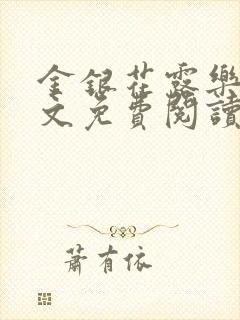 金銀花露樂
文免費閱讀
蕭有依